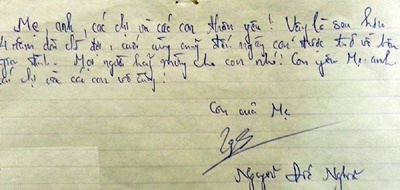 Mẹ, anh, các chị và các con thân yêu! Vậy là sau hơn
4 năm dài chờ đợi, cuối cùng cũng đến ngày con được trở về bên
gia đình. Mọi người hãy mừng cho con nhé! Con yêu Mẹ, anh
các chị và các con vô cùng!
Con của Mẹ